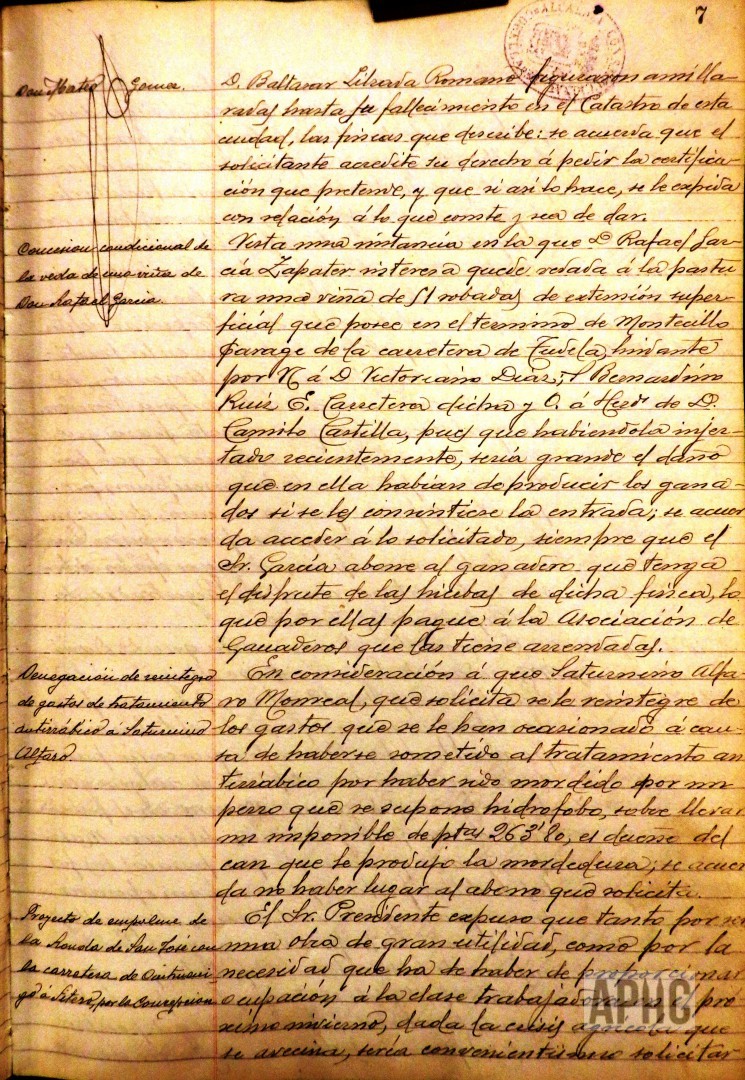 7
Don Mateo Gomez.
D. Baltasar Librada Romano figuraron amilla-
radas hasta su fallecimiento en el Catastro de esta
ciudad, las fincas que describe: se acuerda que el
solicitante acredite su derecho á pedir la certifica-
ción que pretende, y que si así lo hace, se le expida
con relación á lo que conste y sea de dar.
Concesion condicional de
la veda de una viña de
Don Rafael Garcia.
Vista una instancia en la que D. Rafael Gar-
cía Zapater interesa quede vedada á la pastu-
ra una viña de 51 robadas de extensión super-
ficial que posee en el termino de Montecillo
Parage de la carretera de Tudela, lindante
por N á D Victoriano Diaz; S Bernardino
Ruiz E. Carretera dicha y O. á Herds de D.
Camilo Castilla, pues que habiendola injer-
tado recientemente, sería grande el daño
que en ella habian de producir los gana-
dos si se les consintiese la entrada; se acuer-
da acceder á lo solicitado, siempre que el
Sr. García abone al ganadero que tenga
el disfrute de las hierbas de dicha finca, lo
que por ellas pague á la Asociación de
Ganaderos que las tiene arrendadas.
Denegación de reintegro
de gastos de tratamiento
antirrábico á Saturnino
Alfaro.
En consideración á que Saturnino Alfa-
ro Monreal, que solicita se le reintegre de
los gastos que se le han ocasionado á cau-
sa de haberse sometido al tratamiento an
tirrábico por haber sido mordido por un
perro que se supone hidrofobo, sobre llevar
un imponible de ptas 263'80, es dueño del
can que le produjo la mordedura; se acuer
da no haber lugar al abono que solicita.
Proyecto de empalme de
la Ronda de San José con
la carretera de Cintruéni-
go á Fitero, por la Concepcion
El Sr. Presidente expuso que tanto por ser
una obra de gran utilidad, como por la
necesidad que ha de haber de proporcionar
ocupación á la clase trabajadora en el pró-
ximo invierno, dada la crisis agrícola que
se avecina, sería convenientísimo solicitar
APHG